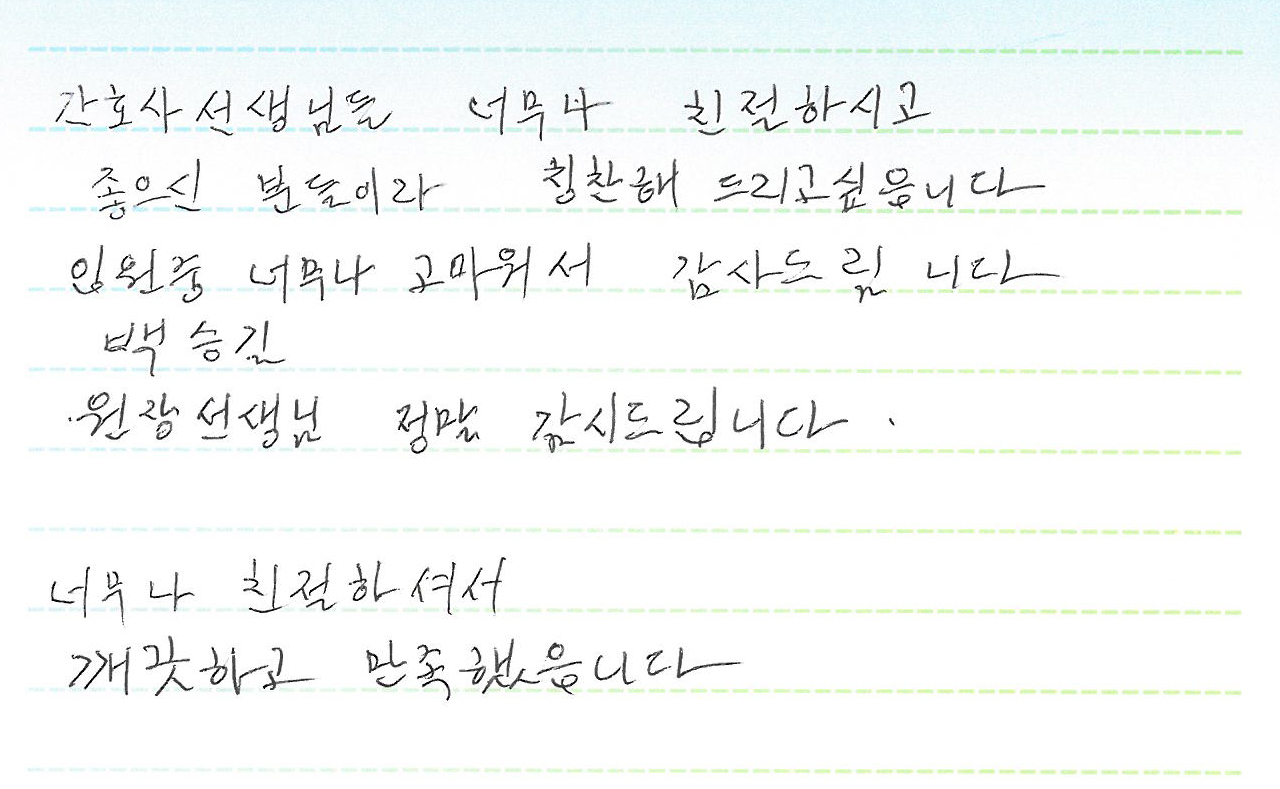 간호사선생님들 너무나 친절하시고
좋으신 분들이라 칭찬해 드리고싶읍니다
입원중 너무나 고마워서 감사드립 니다
백승길
.원장선생님 정말 감시드립니다 .
너무나 친절하셔서
깨끗하고 만족했읍니다